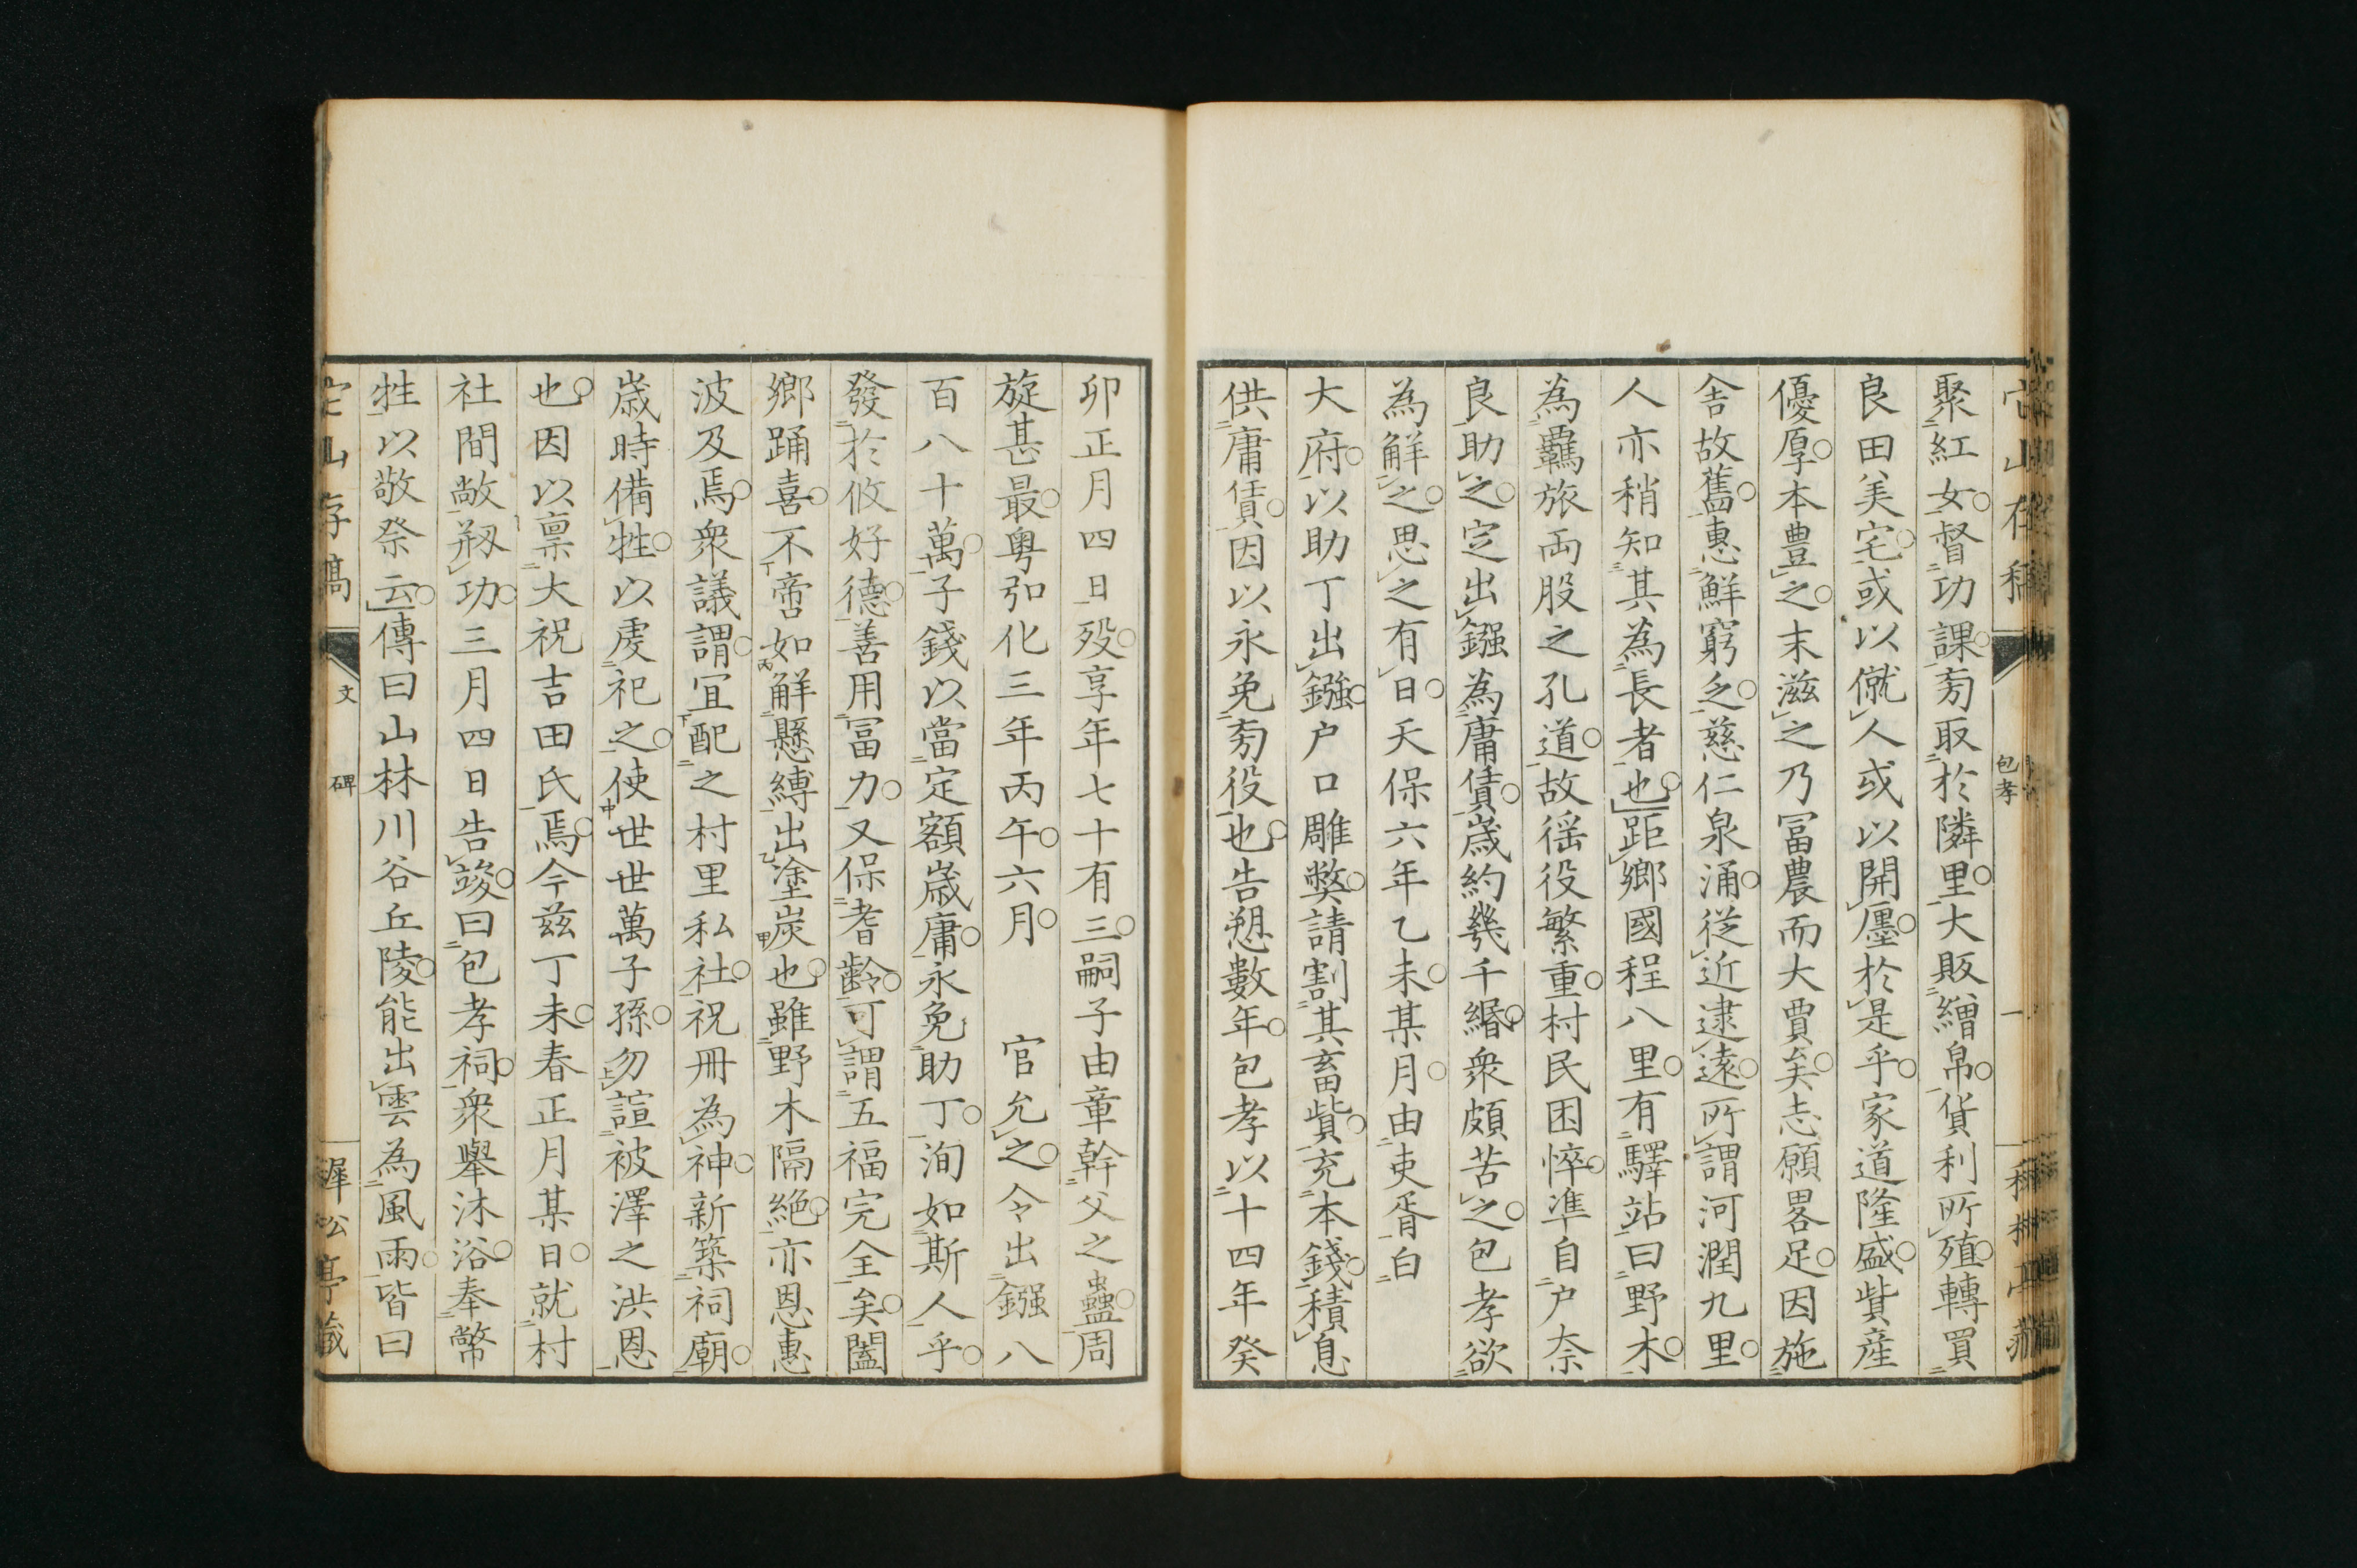 聚紅女督功課旁取於隣里大販繒帛貨利所殖轉買
良田美宅或以僦人或以開廛於是乎家道隆盛貲産
優厚本豊之末滋之乃冨農而大賈矣志願畧足因施
舎故舊惠鮮窮乏慈仁泉涌從近逮遠所謂河潤九里
人亦稍知其為長者也距鄉國程八里有驛站曰野木
為羈旅両股之孔道故徭役繁重村民困悴準自户奈
良助之定出鏹為庸賃歳約幾千緡衆頗苦之包孝欲
為解之思之有日天保六年乙未某月由吏胥白
大府以助丁出鏹户口雕弊請割其畜貲充本錢積息
供庸賃因以永免旁役也告愬數年包孝以十四年癸
卯正月四日殁享年七十有三嗣子由章幹父之蠱周
旋甚最粤弘化三年丙午六月　官允之令出鏹八
百八十萬子錢以當定額歳庸永免助丁洵如斯人乎
發於攸好德善用冨力又保耆齡可謂五福完全矣闔
鄉踊喜不啻如解懸縛出塗炭也雖野木隔絶亦恩惠
波及焉衆議謂宜配之村里私社祝冊為神新築祠廟
歳時備牲以虔祀之使世世萬子孫勿諠被澤之洪恩
也因以禀大祝吉田氏焉今兹丁未春正月某日就村
社間敞剏功三月四日告竣曰包孝祠衆舉沐浴奉幣
牲以敬祭云傳曰山林川谷丘陵能出雲為風雨皆曰
文　碑
包孝
一